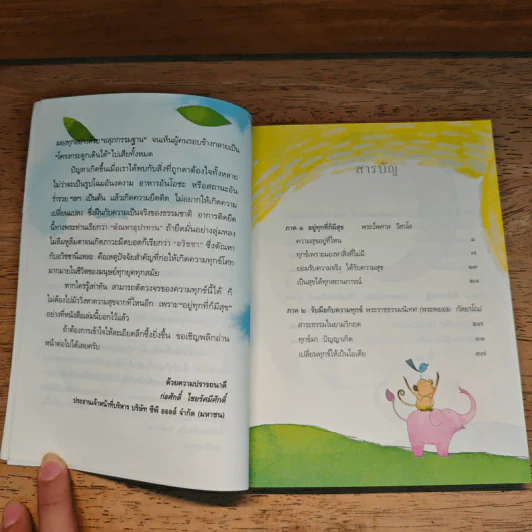 มองทุกอย่างด้วย “อสุภกรรมฐาน” จนเห็นผู้คนรอบข้างกลายเป็น
“โครงกระดูกเดินได้” ไปเสียทั้งหมด
ปัญหาเกิดขึ้นเมื่อเราได้พบกับสิ่งที่ถูกตาต้องใจทั้งหลาย
ไม่ว่าจะเป็นรูปโฉมอันงดงาม อาหารอันโอชะ หรือสถานะอัน
ร่ำรวย ฯลฯ เป็นต้น แล้วเกิดความยึดติด ไม่อยากให้เกิดความ
เปลี่ยนแปลง ซึ่งฝืนกับความเป็นจริงของธรรมชาติ อาการติดยึด
นี้ทางพระท่านเรียกว่า “ตัณหาอุปาทาน” ถ้ายึดมั่นอย่างลุ่มหลง
ไม่ลืมหูลืมตาจนเกิดภาวะมืดบอดก็เรียกว่า “อวิชชา” ซึ่งตัณหา
กับอวิชชานี่แหละ คือเหตุปัจจัยสำคัญที่ก่อให้เกิดความทุกข์โศก
มากมายในชีวิตของมนุษย์ทุกยุคทุกสมัย
หากใครรู้เท่าทัน สามารถตัดวงจรของความทุกข์นี้ได้ ก็
ไม่ต้องไปมัววิ่งหาความสุขจากที่ไหนอีก เพราะ “อยู่ทุกที่ก็มีสุข”
อย่างที่หนังสือเล่มนี้บอกไว้แล้ว
ถ้าต้องการเข้าใจให้ละเอียดลึกซึ้งยิ่งขึ้น ขอเชิญพลิกอ่าน
หน้าต่อไปได้เลยครับ
ด้วยความปรารถนาดี
ก่อศักดิ์ ไชยรัศมีศักดิ์
ประธานเจ้าหน้าที่บริหาร บริษัท ซีพี ออลล์ จำกัด (มหาชน)
สารบัญ
ภาค ๑ อยู่ทุกที่ก็มีสุข พระไพศาล วิสาโล
ความสุขอยู่ที่ไหน ๑
ทุกข์เพราะมองหาสิ่งที่ไม่มี ๗
ยอมรับความจริง ได้รับความสุข ๑๓
เป็นสุขได้ทุกสถานการณ์ ๒๑
ภาค ๒ รับมือกับความทุกข์ พระราชธรรมนิเทศ (พระพยอม กัลยาโณ)
สาระธรรมในยามวิกฤต ๒๗
ทุกข์มา ปัญญาเกิด ๓๑
เปลี่ยนทุกข์ให้เป็นไอเดีย ๓๙